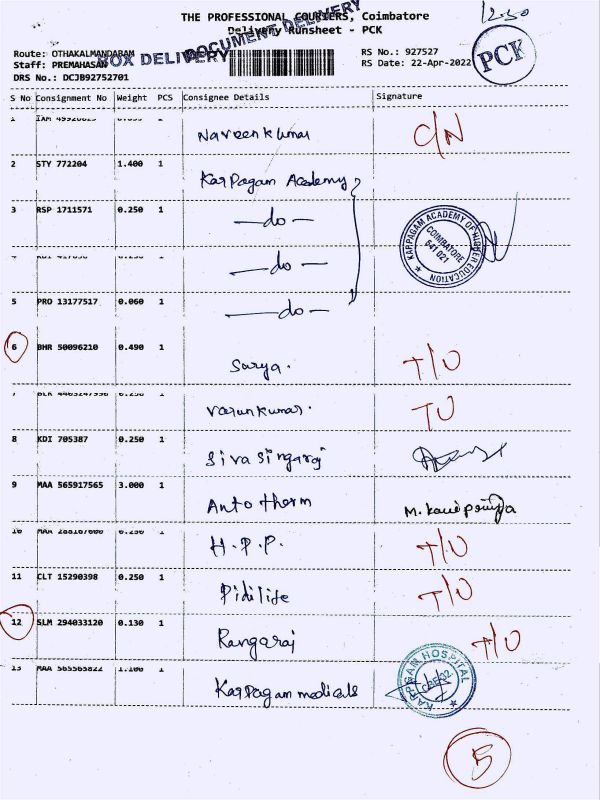 12.50
THE PROFESSIONAL COURIERS, Coimbatore
Delivery Runsheet - PCK
DOCUMENT DELIVERY
BOX DELIVERY
PCK
Route: OTHAKALMANDABAM
Staff: PREMAHASAN
DRS No.: DCJB92752701
RS No.: 927527
RS Date: 22-Apr-2022
S No Consignment No Weight PCS Consignee Details Signature
1 1 Naveen kumar C/N
2 STY 772204 1.400 1 Karpagam Academy
3 RSP 1711571 0.250 1 —do—
KARPAGAM ACADEMY OF HIGHER EDUCATION
COIMBATORE
641 021
4 —do—
5 PRO 13177517 0.060 1 —do—
6 BHR 50096210 0.490 1 Surya. T/U
7 Varunkumar. TU
8 KDI 705387 0.250 1 Siva Singaraj
9 MAA 565917565 3.000 1 Anto therm
10 H.P.P. T/U
11 CLT 15290398 0.250 1 Pidilite T/U
12 SLM 294033120 0.130 1 Rangaraj T/U
13 MAA 565565822 1.100 1 Karpagam medicals
KARPAGAM HOSPITAL
5